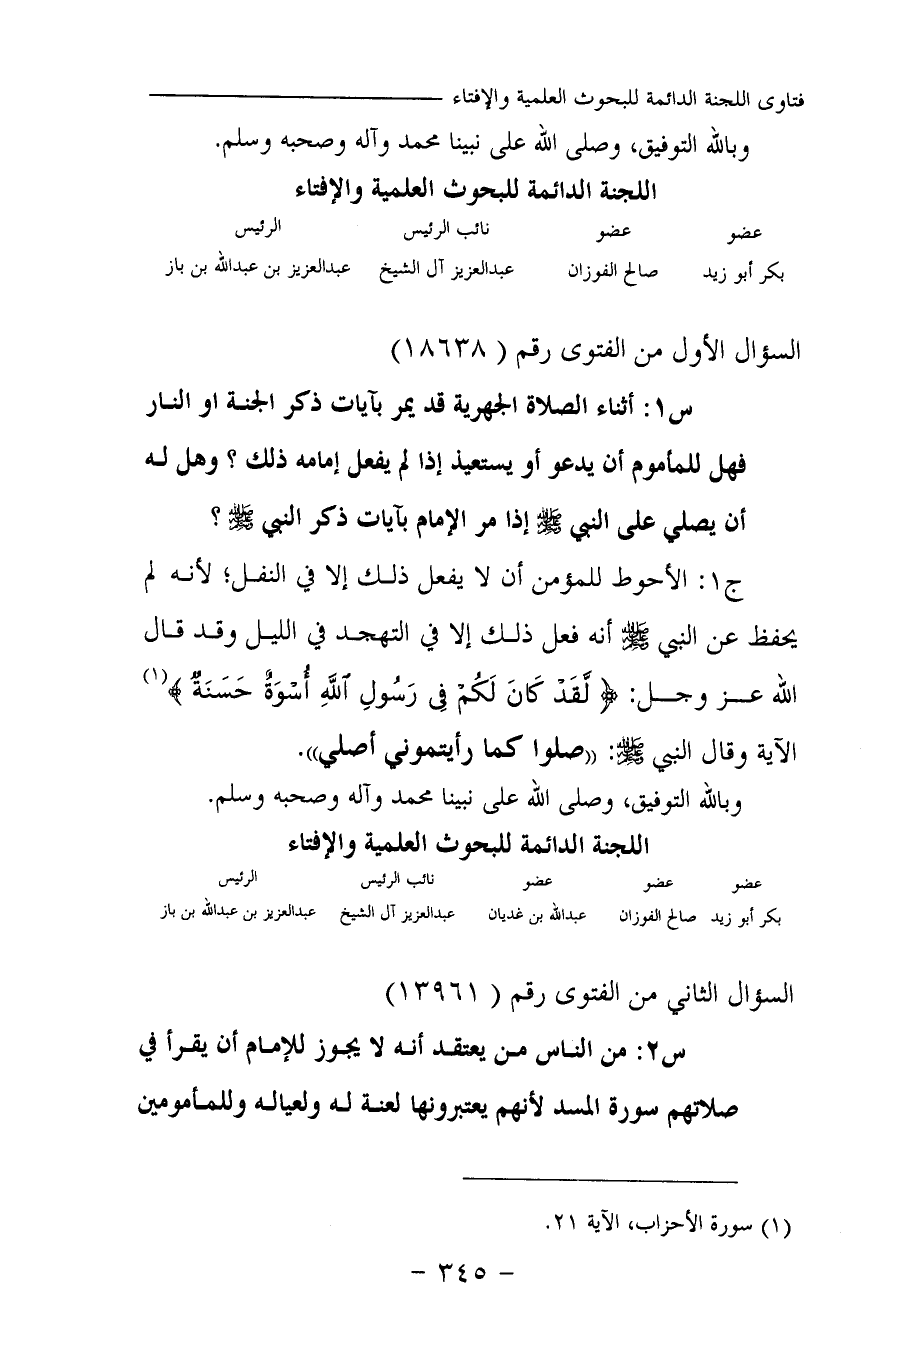 فتاوى اللجنة الدائمة للبحوث العلمية والإفتاء
وبالله التوفيق، وصلى الله على نبينا محمد وآله وصحبه وسلم.
اللجنة الدائمة للبحوث العلمية والإفتاء
عضو عضو نائب الرئيس الرئيس
بكر أبو زيد صالح الفوزان عبدالعزيز آل الشيخ عبدالعزيز بن عبدالله بن باز
السؤال الأول من الفتوى رقم ( ١٨٦٣٨)
س١: أثناء الصلاة الجهرية قد يمر بآيات ذكر الجنة او النار
فهل للمأموم أن يدعو أو يستعيذ إذا لم يفعل إمامه ذلك ؟ وهل له
أن يصلي على النبي ﷺ إذا مر الإمام بآيات ذكر النبي ﷺ ؟
ج١: الأحوط للمؤمن أن لا يفعل ذلك إلا في النفل؛ لأنه لم
يحفظ عن النبي ﷺ أنه فعل ذلك إلا في التهجد في الليل وقد قال
الله عز وجل: ﴿ لَّقَدْ كَانَ لَكُمْ فِى رَسُولِ ٱللَّهِ أُسْوَةٌ حَسَنَةٌ ﴾(١)
الآية وقال النبي ﷺ: ((صلوا كما رأيتموني أصلي)).
وبالله التوفيق، وصلى الله على نبينا محمد وآله وصحبه وسلم.
اللجنة الدائمة للبحوث العلمية والإفتاء
عضو عضو عضو نائب الرئيس الرئيس
بكر أبو زيد صالح الفوزان عبدالله بن غديان عبدالعزيز آل الشيخ عبدالعزيز بن عبدالله بن باز
السؤال الثاني من الفتوى رقم ( ١٣٩٦١)
س٢: من الناس من يعتقد أنه لا يجوز للإمام أن يقرأ في
صلاتهم سورة المسد لأنهم يعتبرونها لعنة له ولعياله وللمأمومين
(١) سورة الأحزاب، الآية ٢١.
- ٣٤٥ -